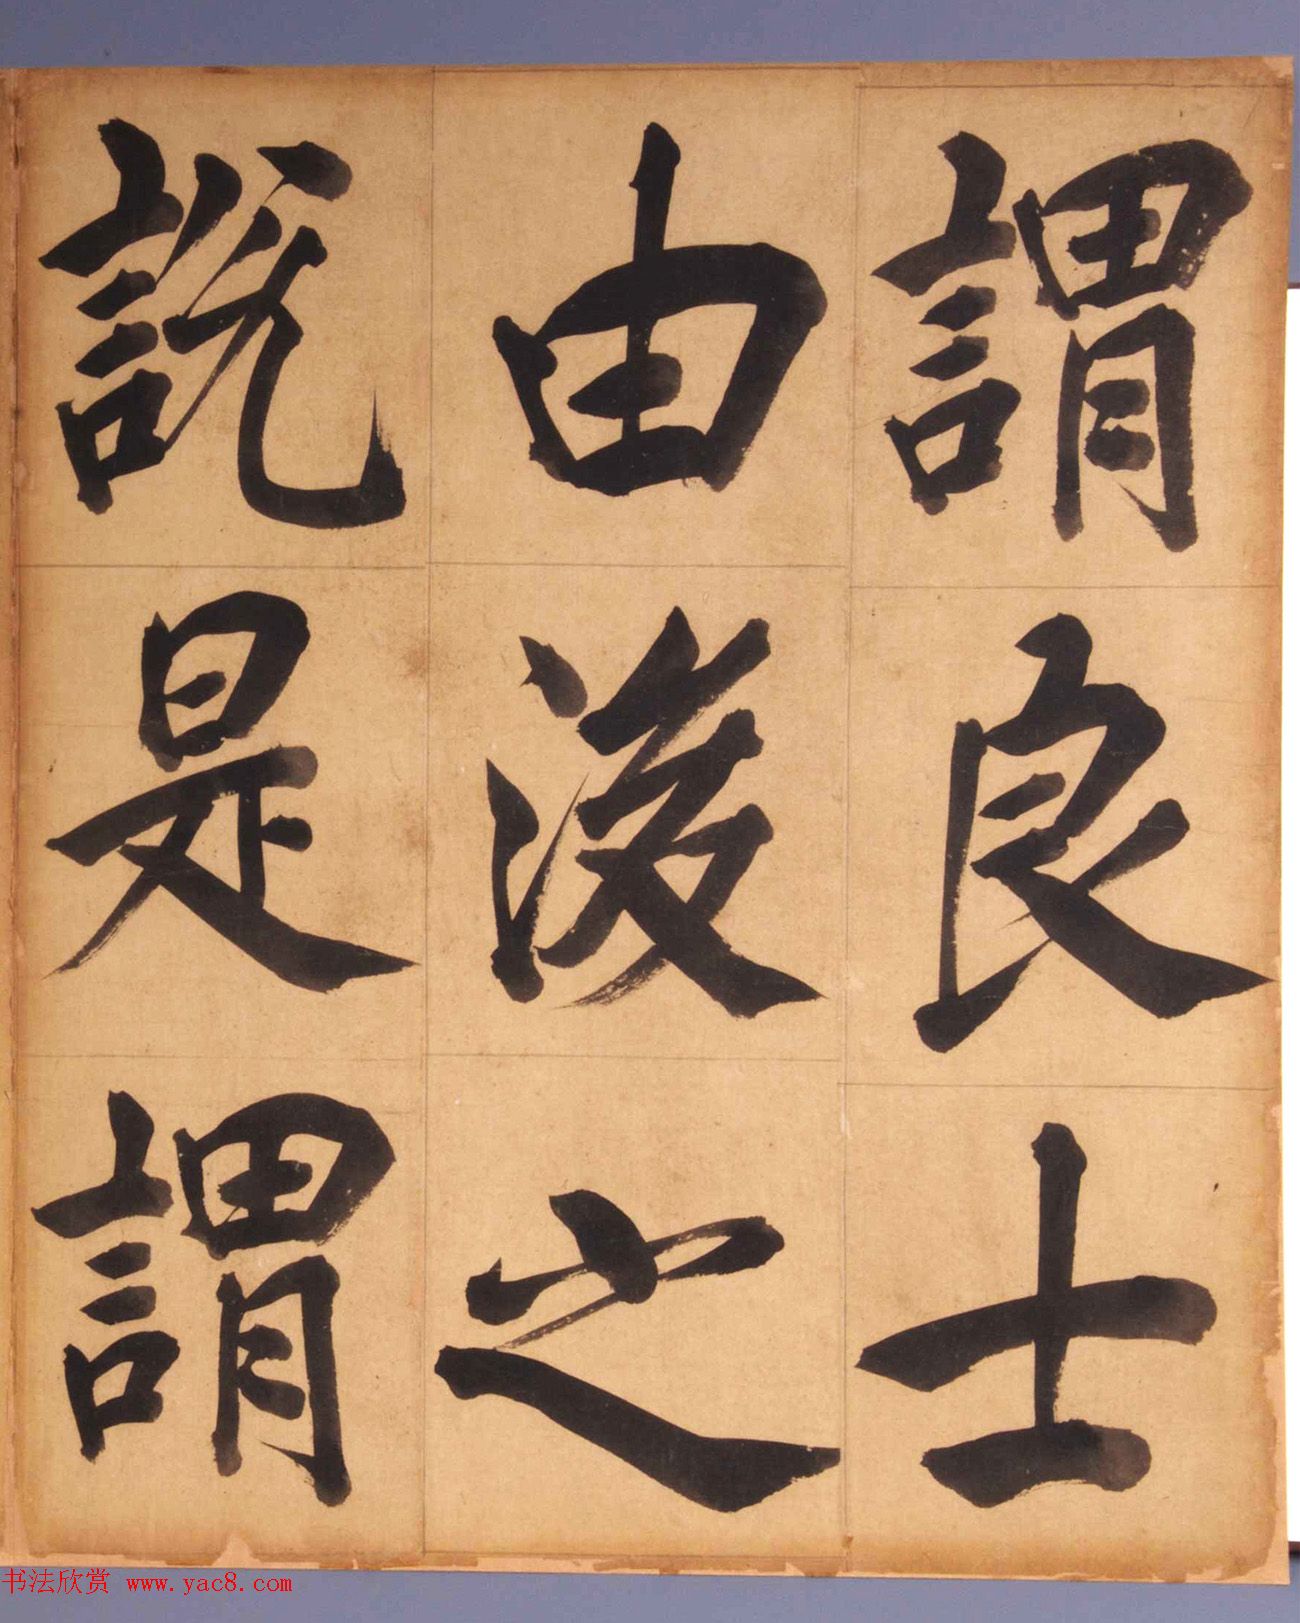 謂良士
由後之
說是謂
书法欣赏 www.yac8.com